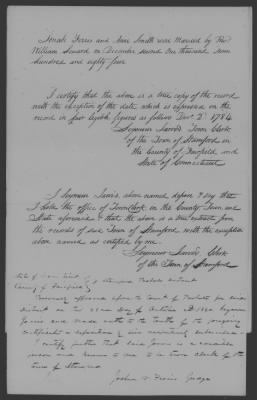 Jonah Ferris and Ann Smith was Married by Rev
William Seward on December second One thousand seven
hundred and eighty four
I certify that the above is a true copy of the record
with the exception of the date which is expressed on the
record in figures as follows Dec 2d 1784
Seymour Jarvis Town Clerk
of the Town of Stamford in
the County of Fairfield and
State of Connecticut
I Seymour Jarvis above named depose & say that
I hold the office of Town Clerk in the County Town and
State aforesaid & that the above is a true extract from
the records of said Town of Stamford with the exception
above named as certified by me
Seymour Jarvis Clerk
of the Town of Stamford
State of Connecticut
County of Fairfield Stamford Probate District
Personally appeared before the Court of Probate for said
District on the day of October Seymour
Jarvis and made oath to the truth of the foregoing
certificate & by him subscribed
I certify further that said Jarvis is a credible
person and known to me to be town clerk of the
town of Stamford
Joshua B Ferris Judge